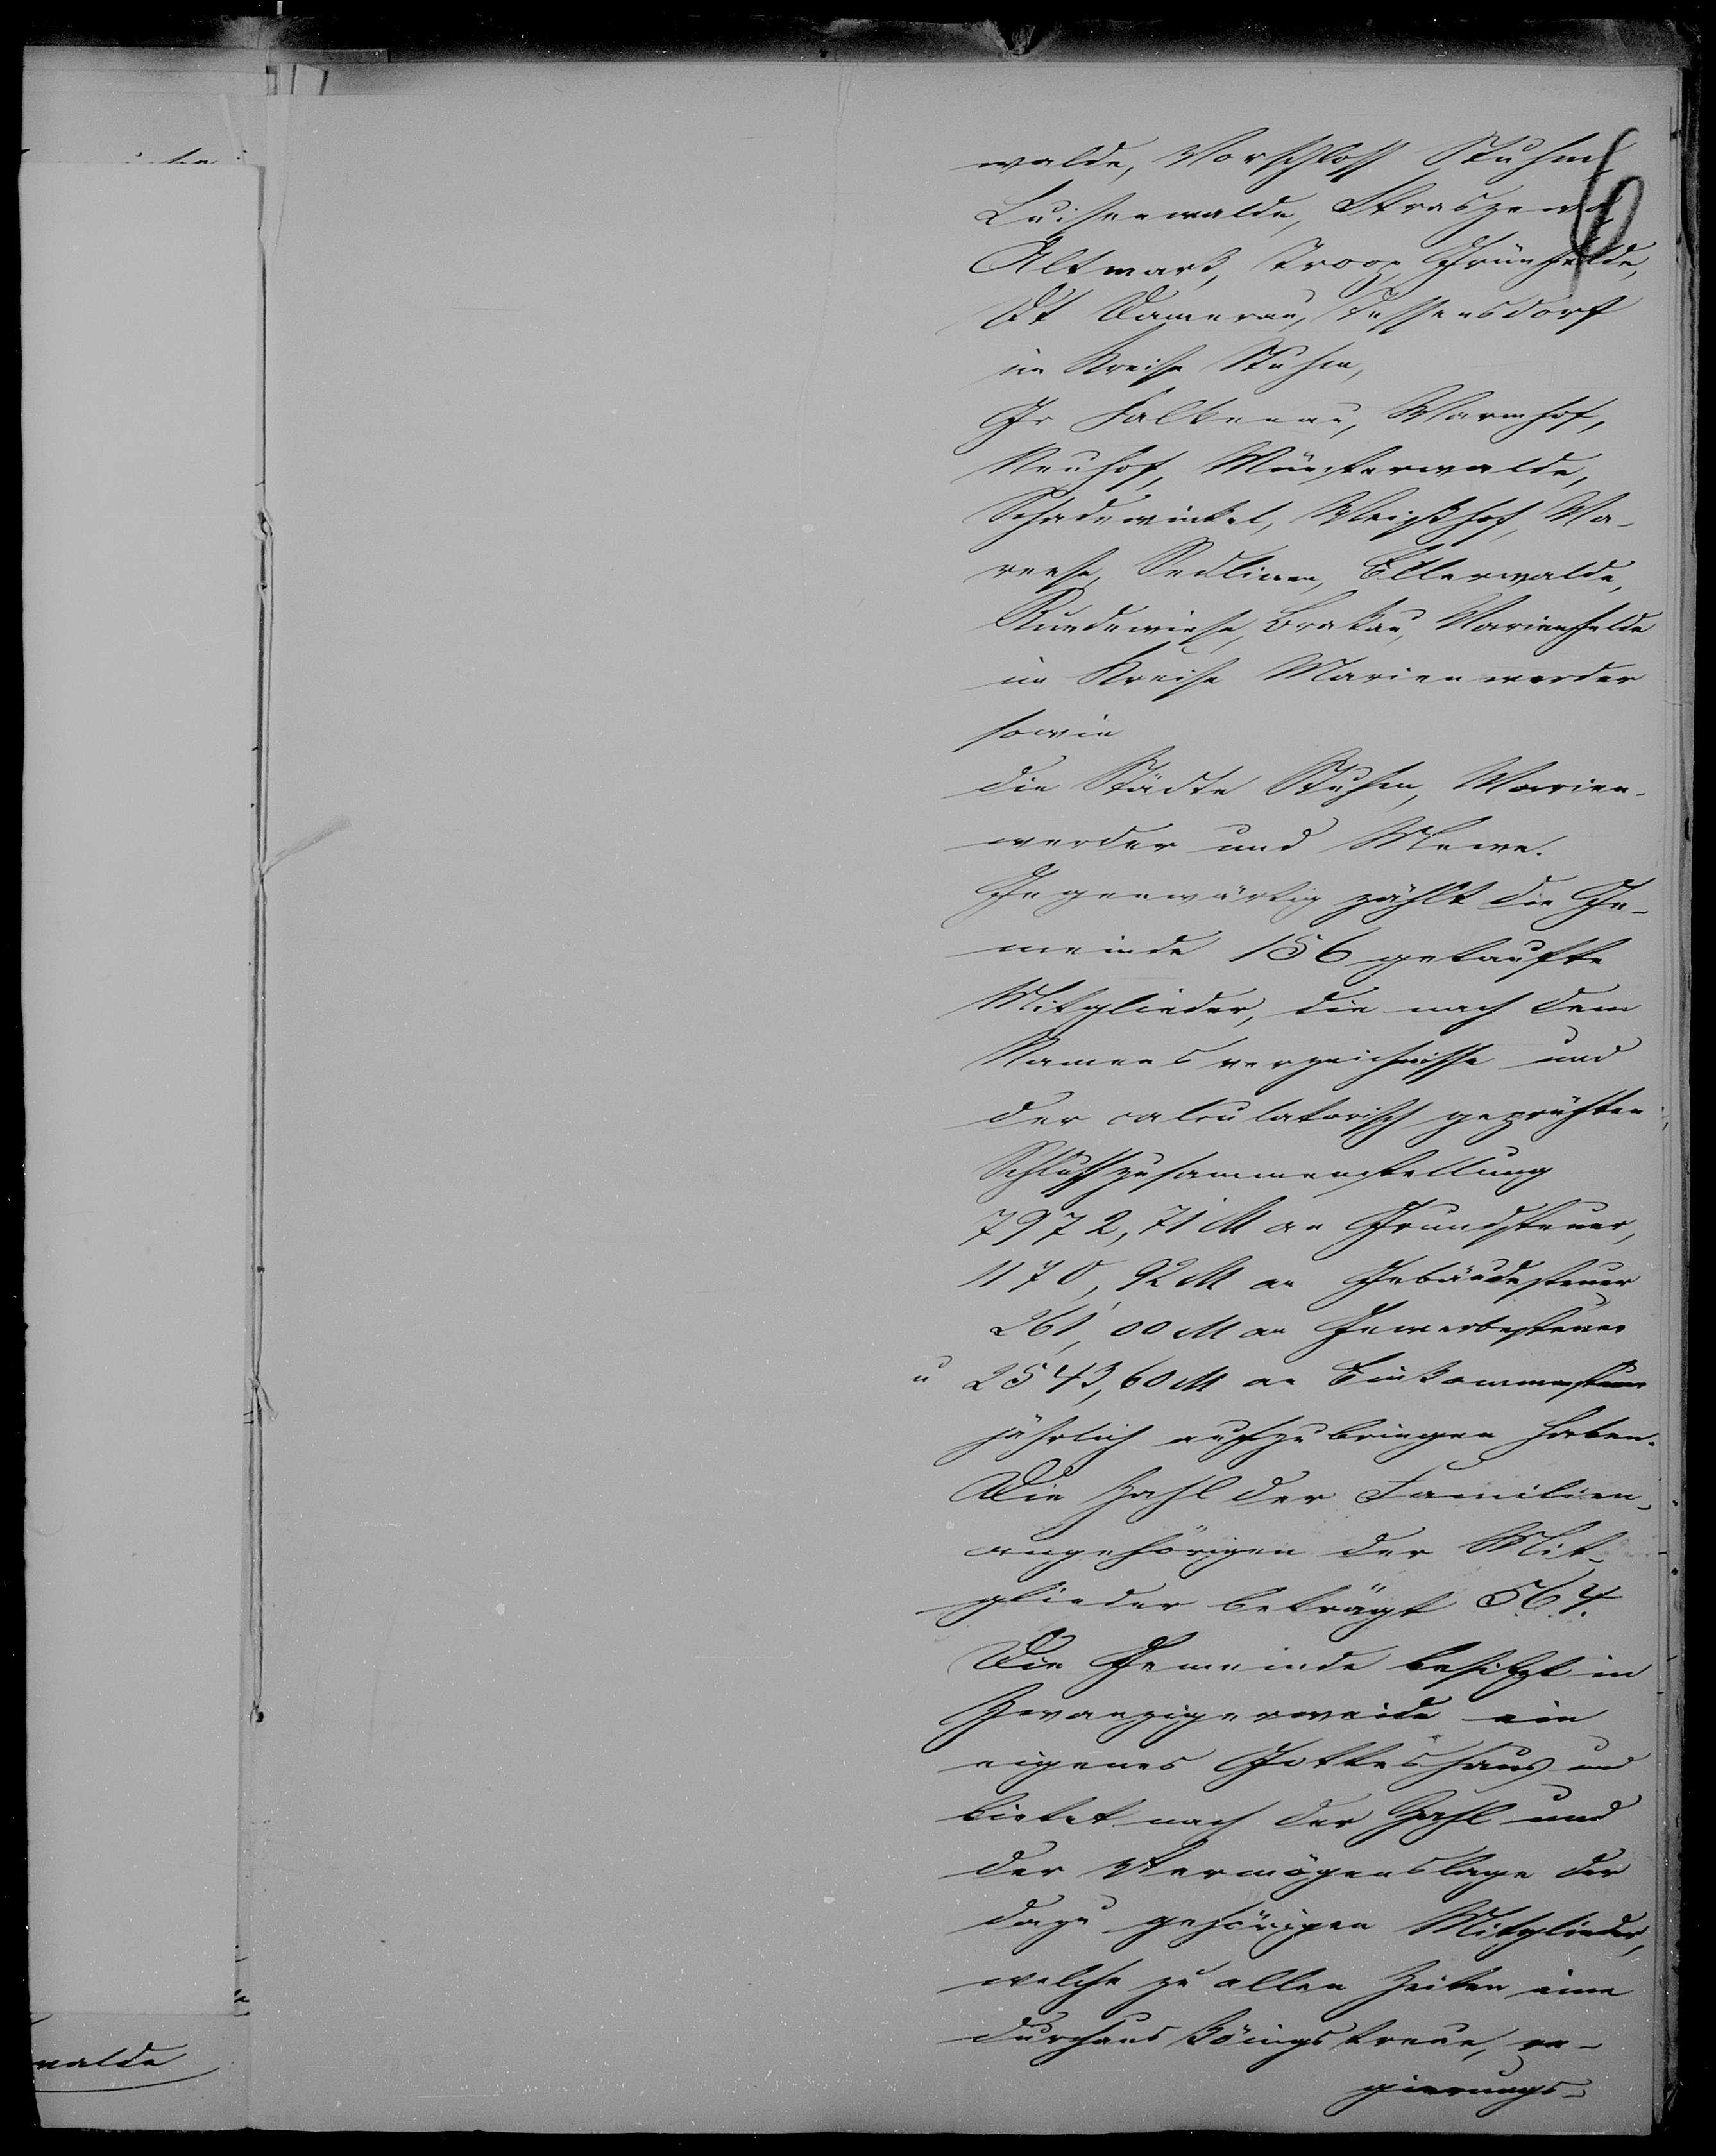 6
walde, Vorschloss Stuhm,
Luisenwalde, Straszewo,
Altmark, Troop, Grünfelde,
Dt Damerau, Tessensdorf
im Kreise Stuhm,
Gr Falkenau, Warmhof,
Neuhof, Münsterwalde,
Schadewinkel, Weißhof, Ma-
reese, Sedlinen, Ellerwalde,
Rundewiese, Brakau, Marienfelde
im Kreise Marienwerder
sowie
die Städte Stuhm, Marien-
werder und Mewe.
Gegenwärtig zählt die Ge-
meinde 156 getaufte
Mitglieder, die nach dem
Namensverzeichnisse und
der calculatorisch geprüften
Schlußzusammenstellung
7972,71 M an Grundsteuer,
1170,92 M an Gebäudesteuer
261,00 M an Gewerbesteuer
u 2543,60 M an Einkommensteuer
jährlich aufzubringen haben.
Die Zahl der Familien-
angehörigen der Mit-
glieder beträgt 564.
Die Gemeinde besitzt in
Zwanzigerweide ein
eigenes Gotteshaus und
bietet nach der Zahl und
der Vermögenslage der
dazu gehörigen Mitglieder,
welche zu allen Zeiten eine
durchaus königstreue, re-
gierungs-
walde